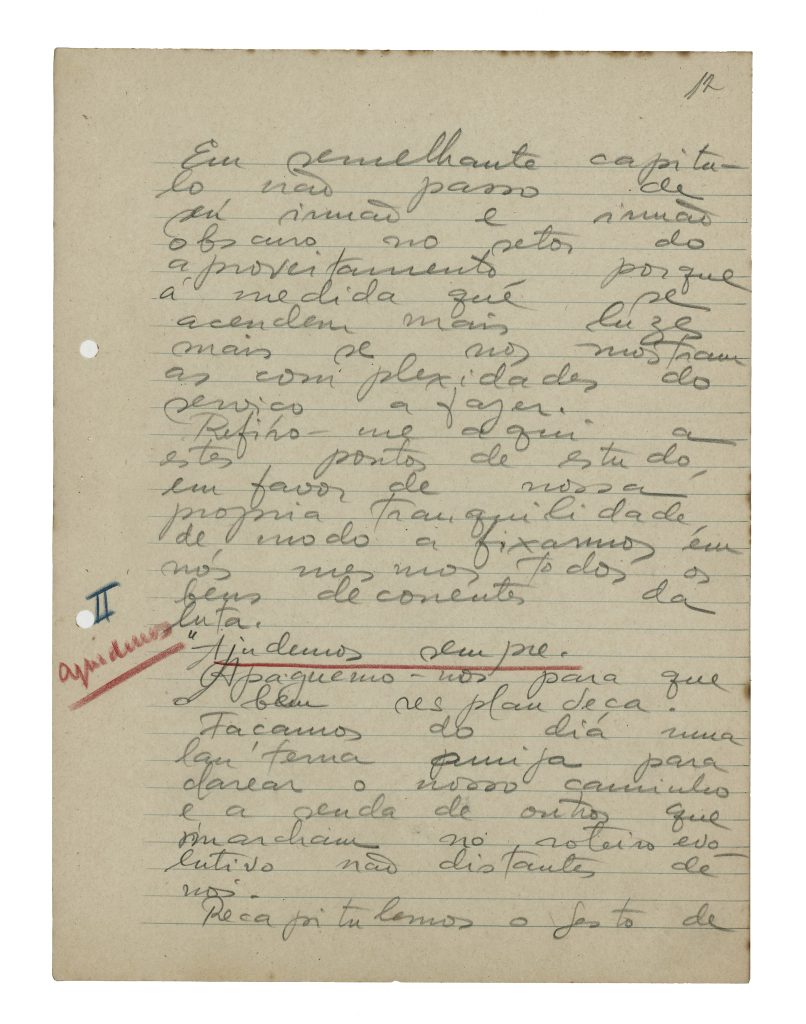 12
Em semelhante capitu-
lo não passo de
seu irmão e irmão
obscuro, no setor do
aproveitamento, porque
á medida que se
acendem mais luzes
mais se nos mostram
as complexidades do
serviço a fazer.
Refiro-me aqui a
estes pontos de estudo,
em favor de nossa
propria tranquilidade
de modo a fixarmos em
nós mesmos todos os
bens decorrentes da
luta.
II
Ajudemos
"Ajudemos sempre.
Apaguemo-nos para que
o bem resplandeça.
Façamos do dia uma
lanterna amiga para
clarear o nosso caminho
e a senda de outros que
marcham no roteiro evo-
lutivo não distantes de
nós.
Recapitulemos o gesto de